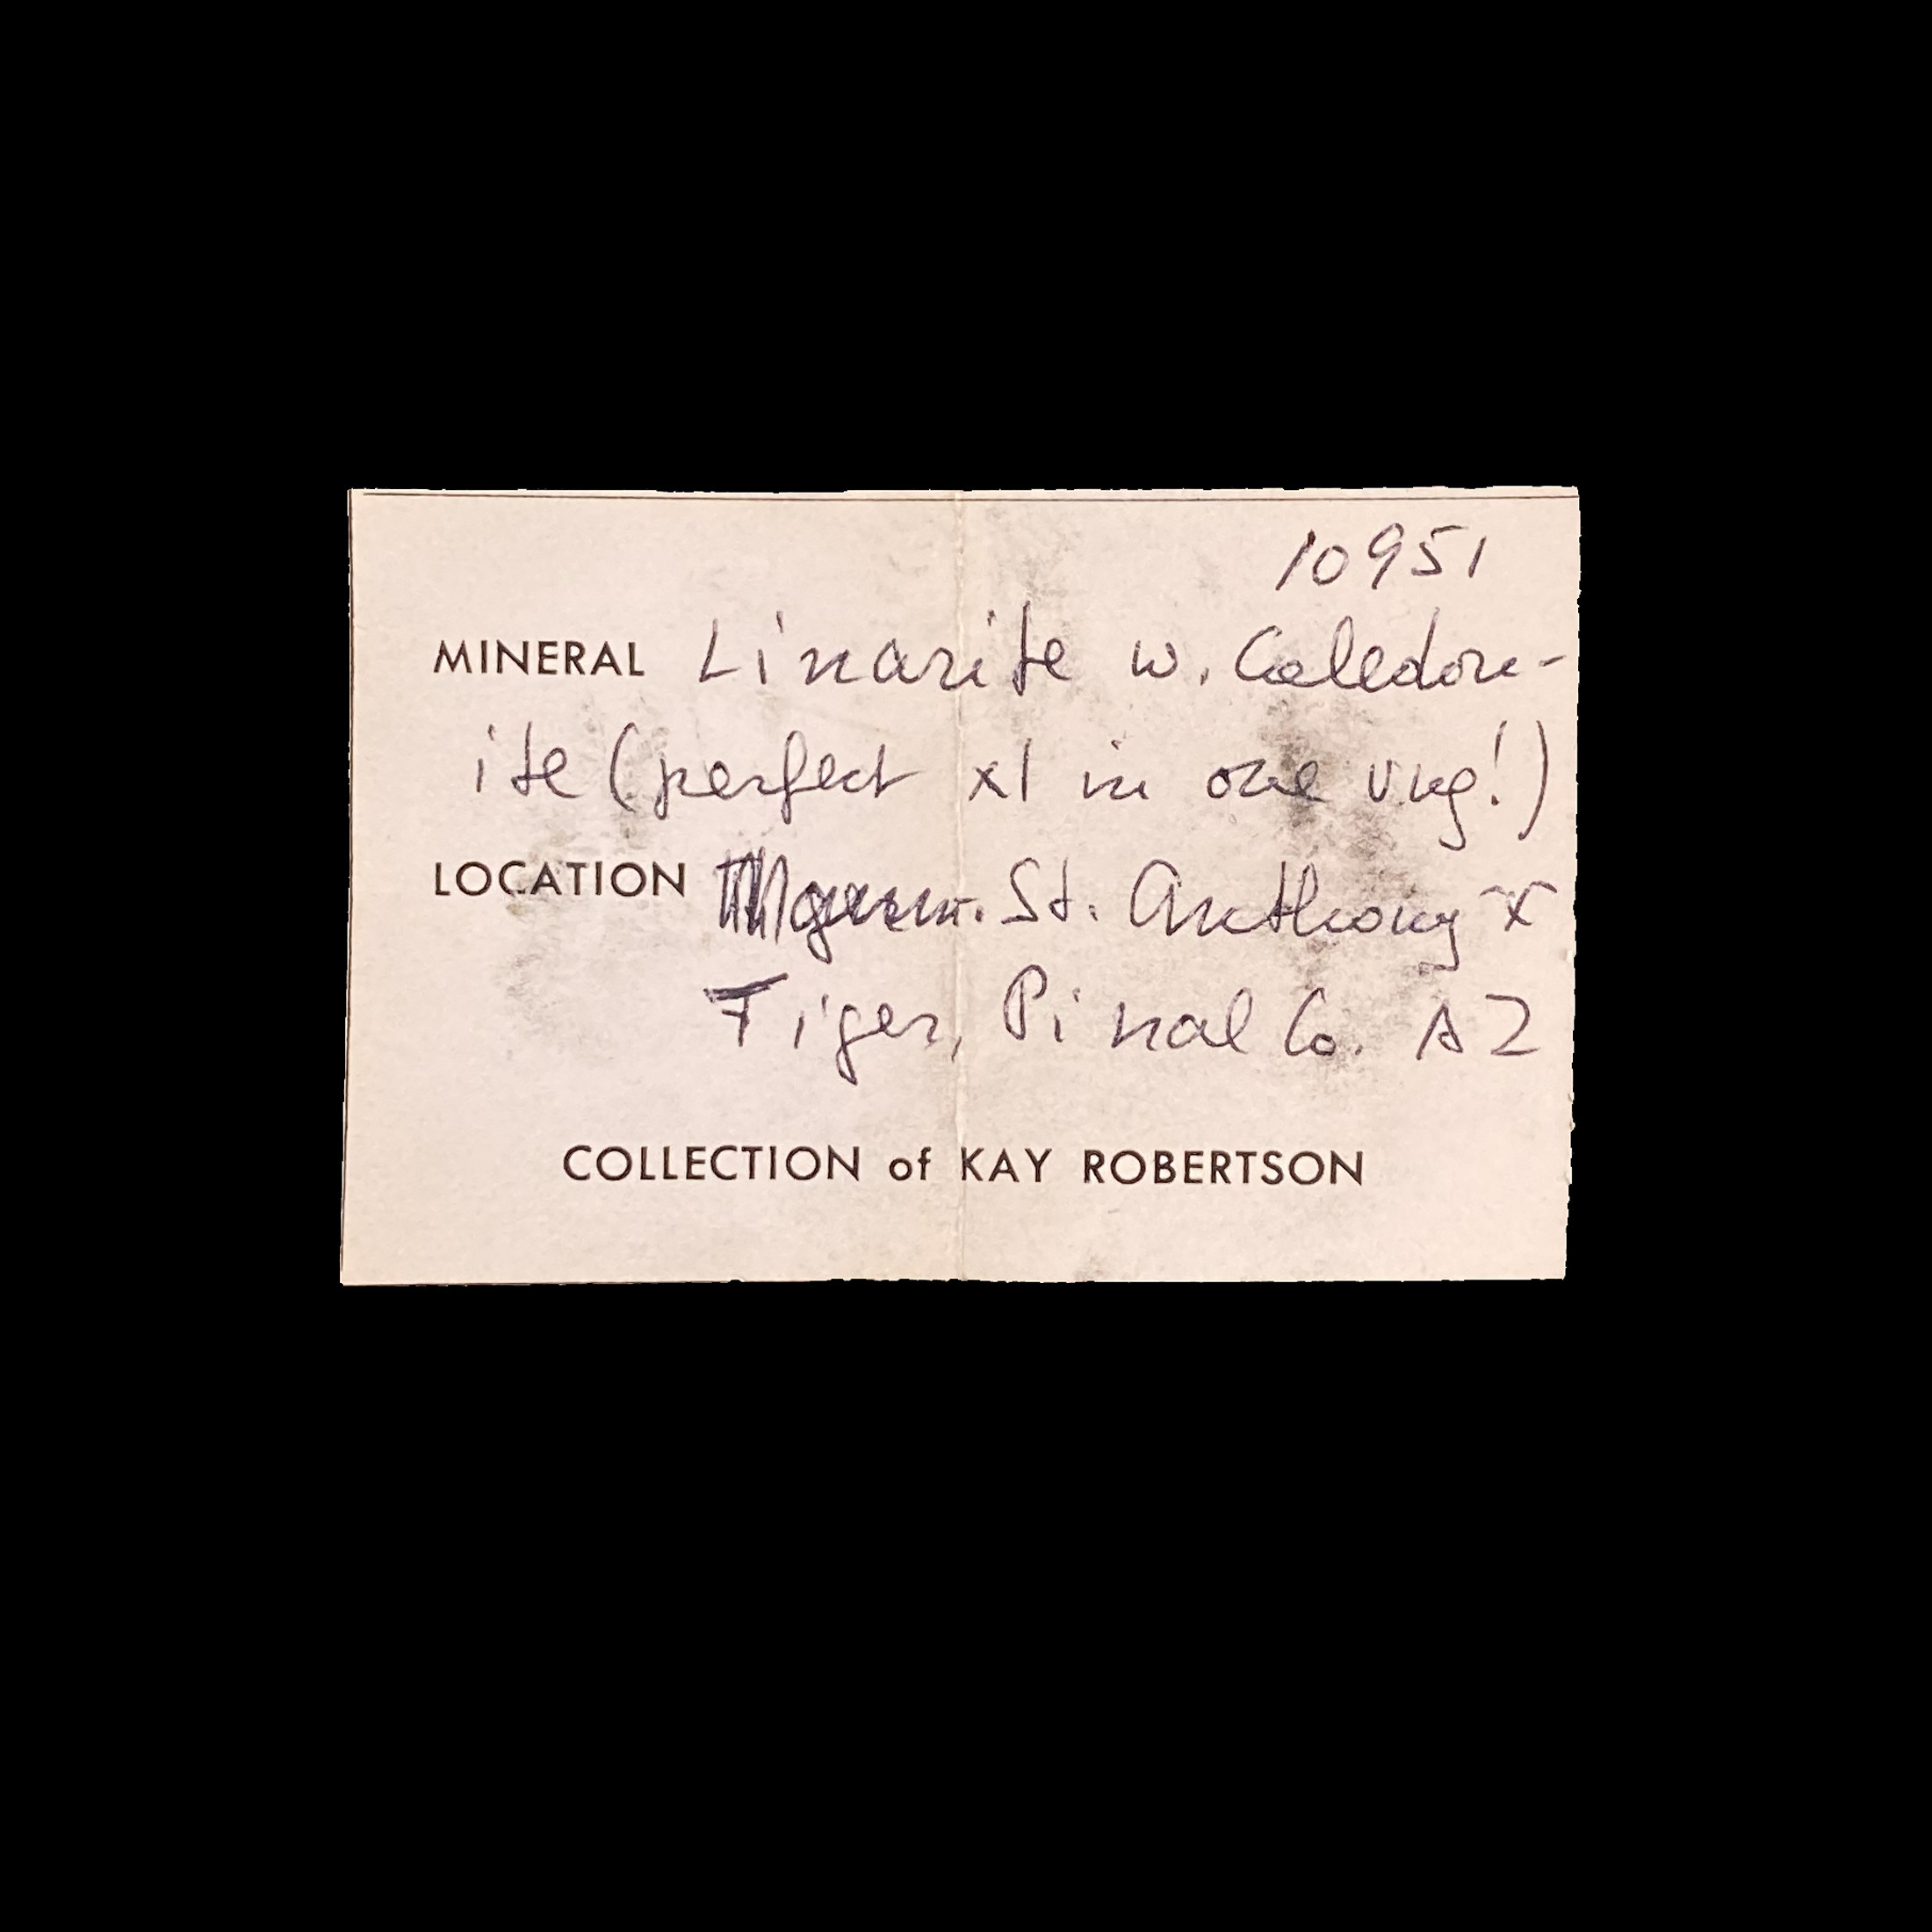 10951
MINERAL Linarite w. Caledon-
ite (perfect xl in one vug!)
LOCATION St. Anthony
Tiger, Pinal Co. AZ
COLLECTION of KAY ROBERTSON